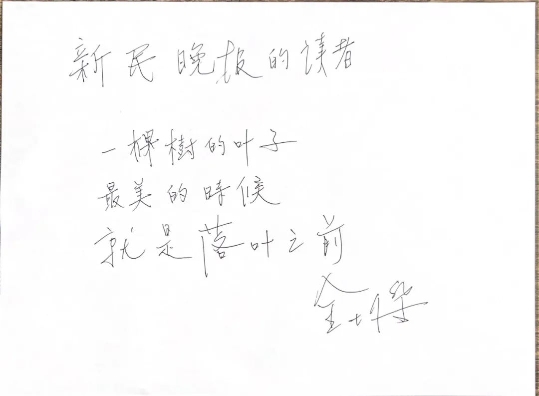 新民晚报的读者
一棵樹的叶子
最美的時候
就是落叶之前
金士傑